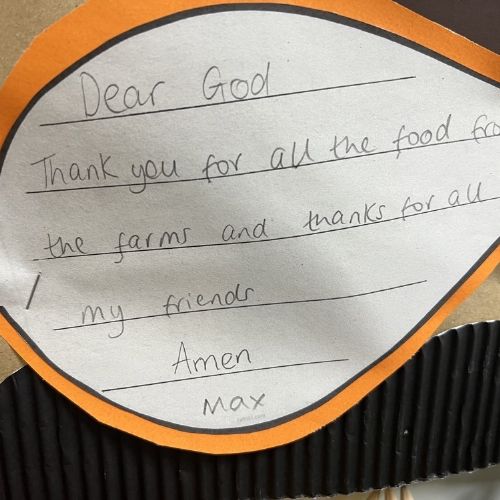 Dear God
Thank you for all the food fro
the farms and thanks for all
my friends
Amen
Max